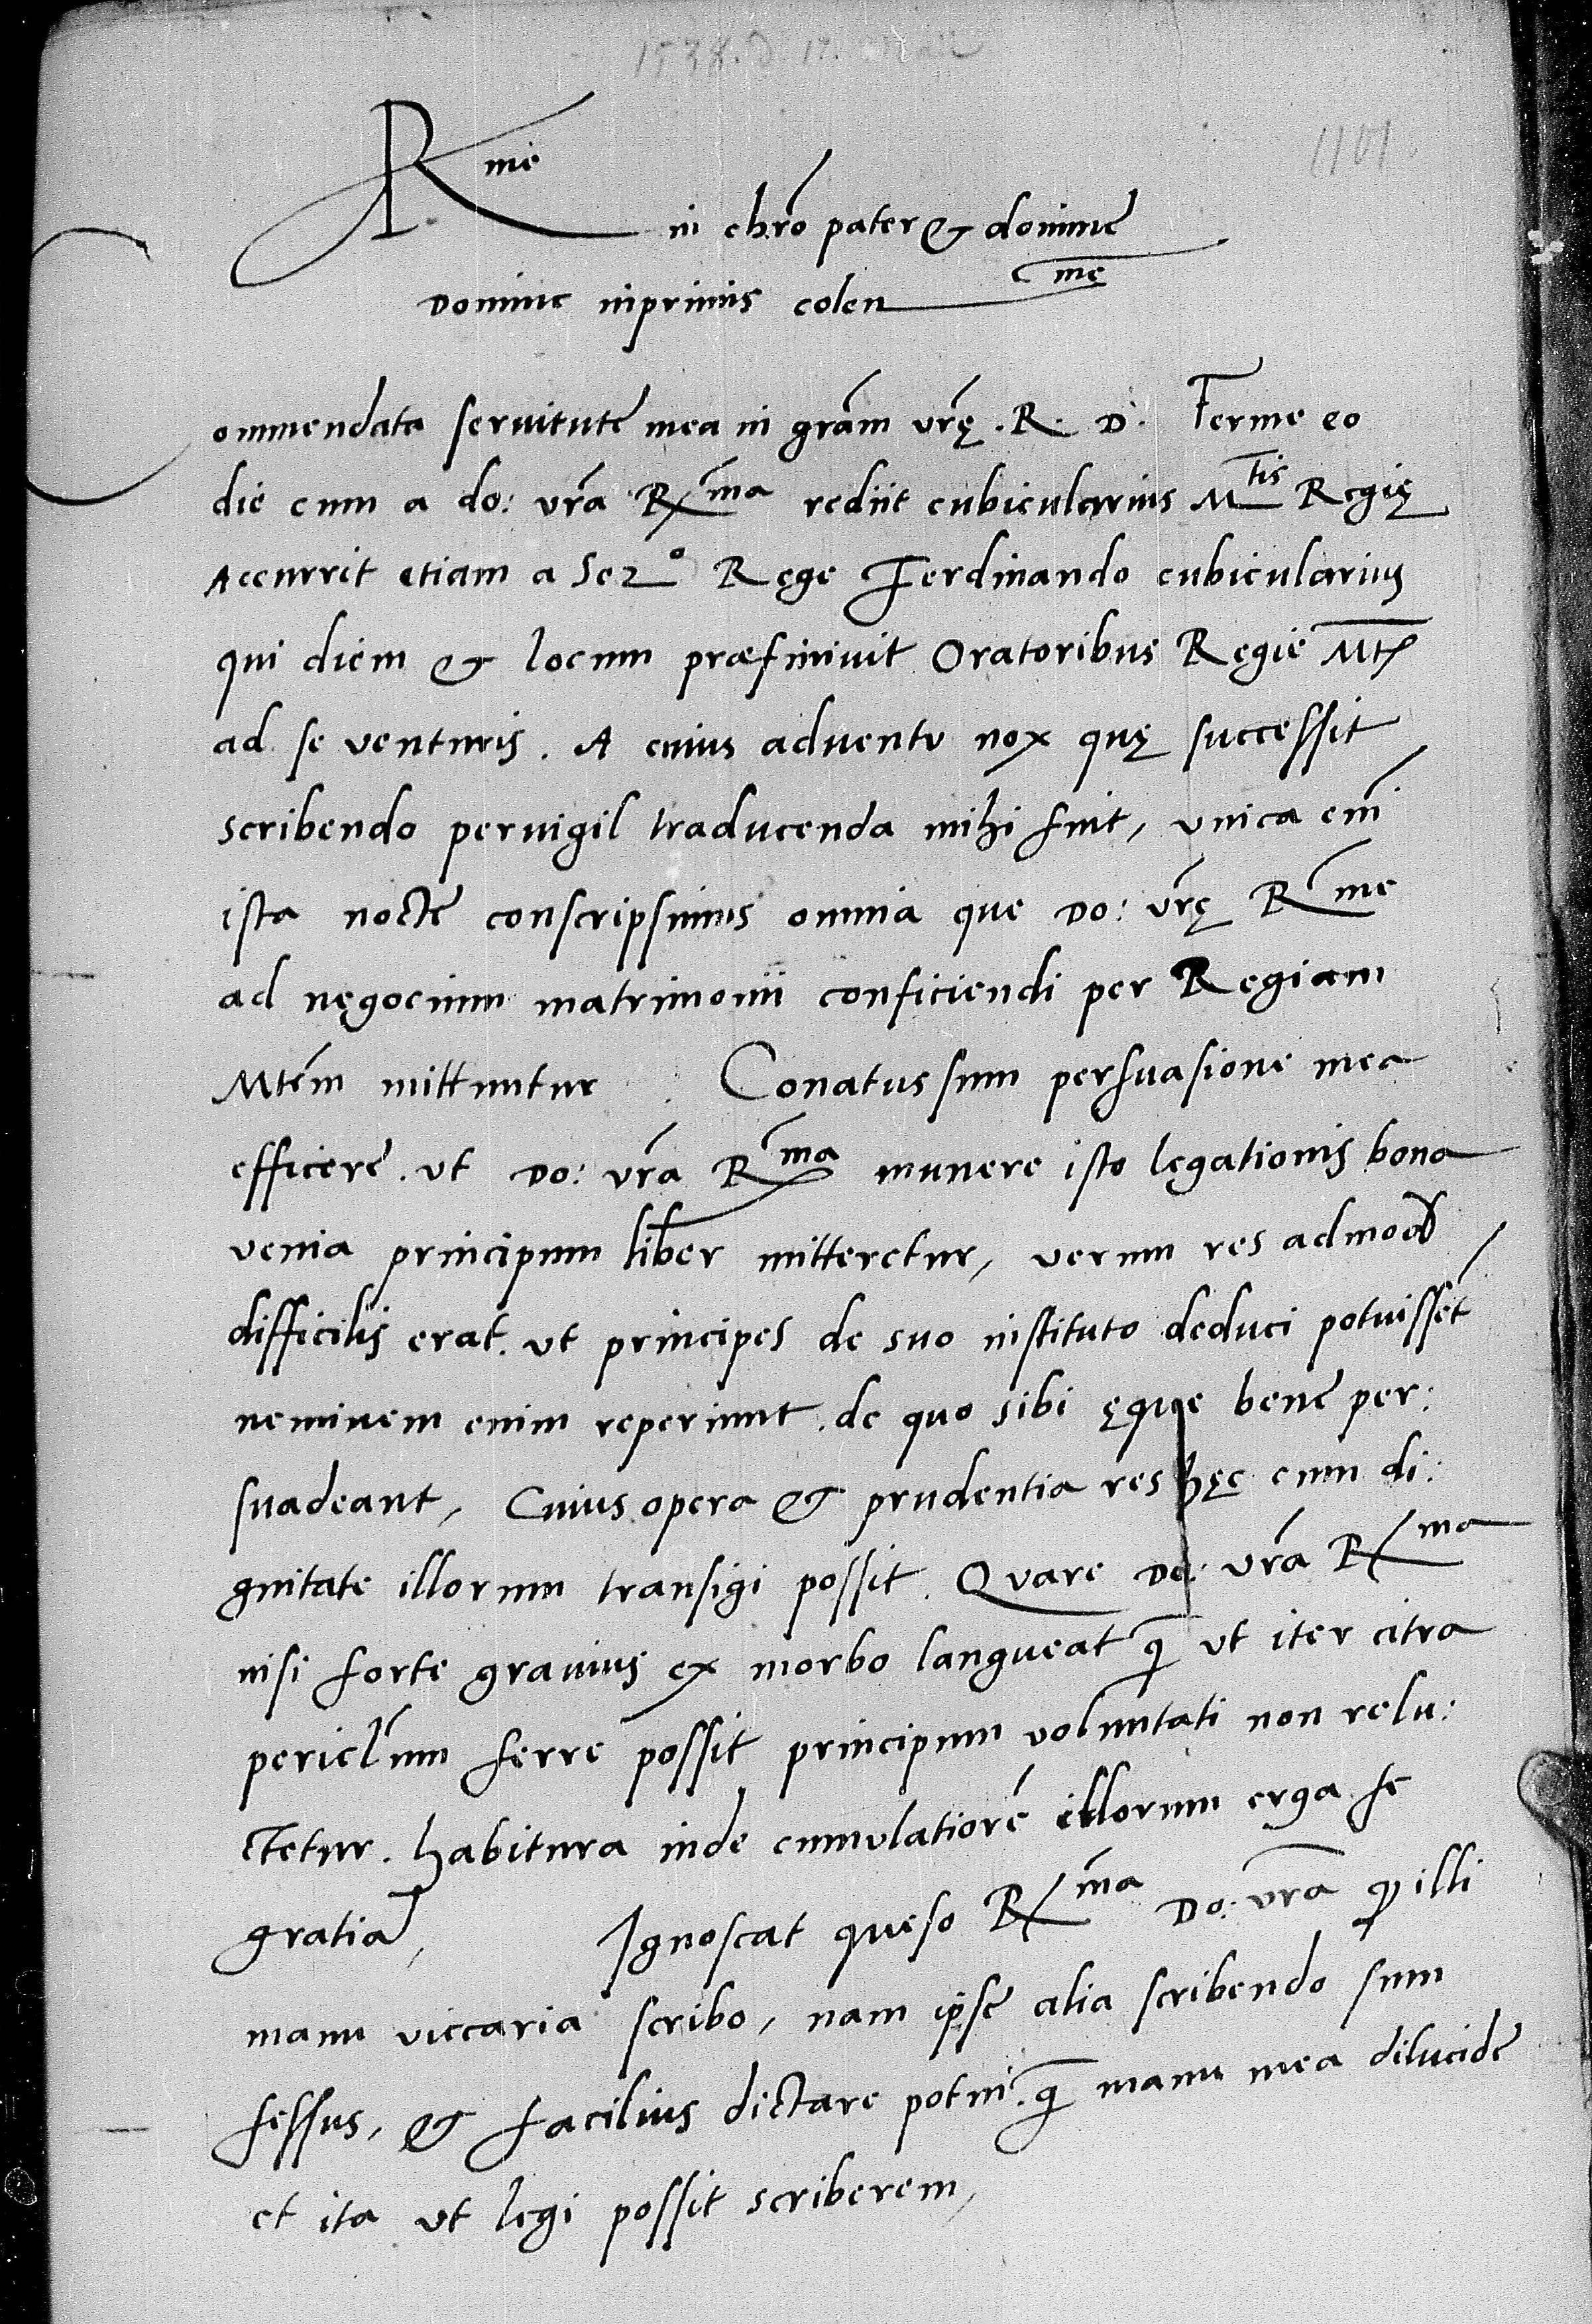 1538. d. 17. Maii
1101
Rme
in chro pater & domine
Domine inprimis colen me
Commendata seruitute mea in gram vrę. R. D. Ferme eo
die cum a do: vra Rma rediit cubicularius Mtis Regię
Accurrit etiam a Ser° Rege Ferdinando cubicularius
qui diem & locum præfiniuit Oratoribus Regie Mtis
ad se venturis. A cuius aduentu nox quę successit
scribendo peruigil traducenda mihi fuit, vnica eni
ista nocte conscripsimus omnia que Do: vrę Rme
ad negocium matrimonii conficiendi per Regiam
Mtem mittuntur. Conatus sum persuasione mea
efficere. vt Do: vra Rma munere isto legationis bona
venia principum liber mitteretur, verum res admod
difficilis erat. vt principes de suo instituto deduci potuisset
neminem enim reperiunt. de quo sibi ęque bene per:
suadeant, Cuius opera & prudentia res hęc cum di:
gnitate illorum transigi possit. Quare Do: vra Rma
nisi forte grauius ex morbo langueat q̄ vt iter citra
periclum ferre possit principum voluntati non relu:
ctetur. habitura inde cumulatiore illorum erga se
gratia, Ignoscat queso Rma Do: vra q illi
manu viccaria scribo, nam ipse alia scribendo sum
fessus, & facilius dictare potui. q̄ manu mea dilucide
et ita vt legi possit scriberem,